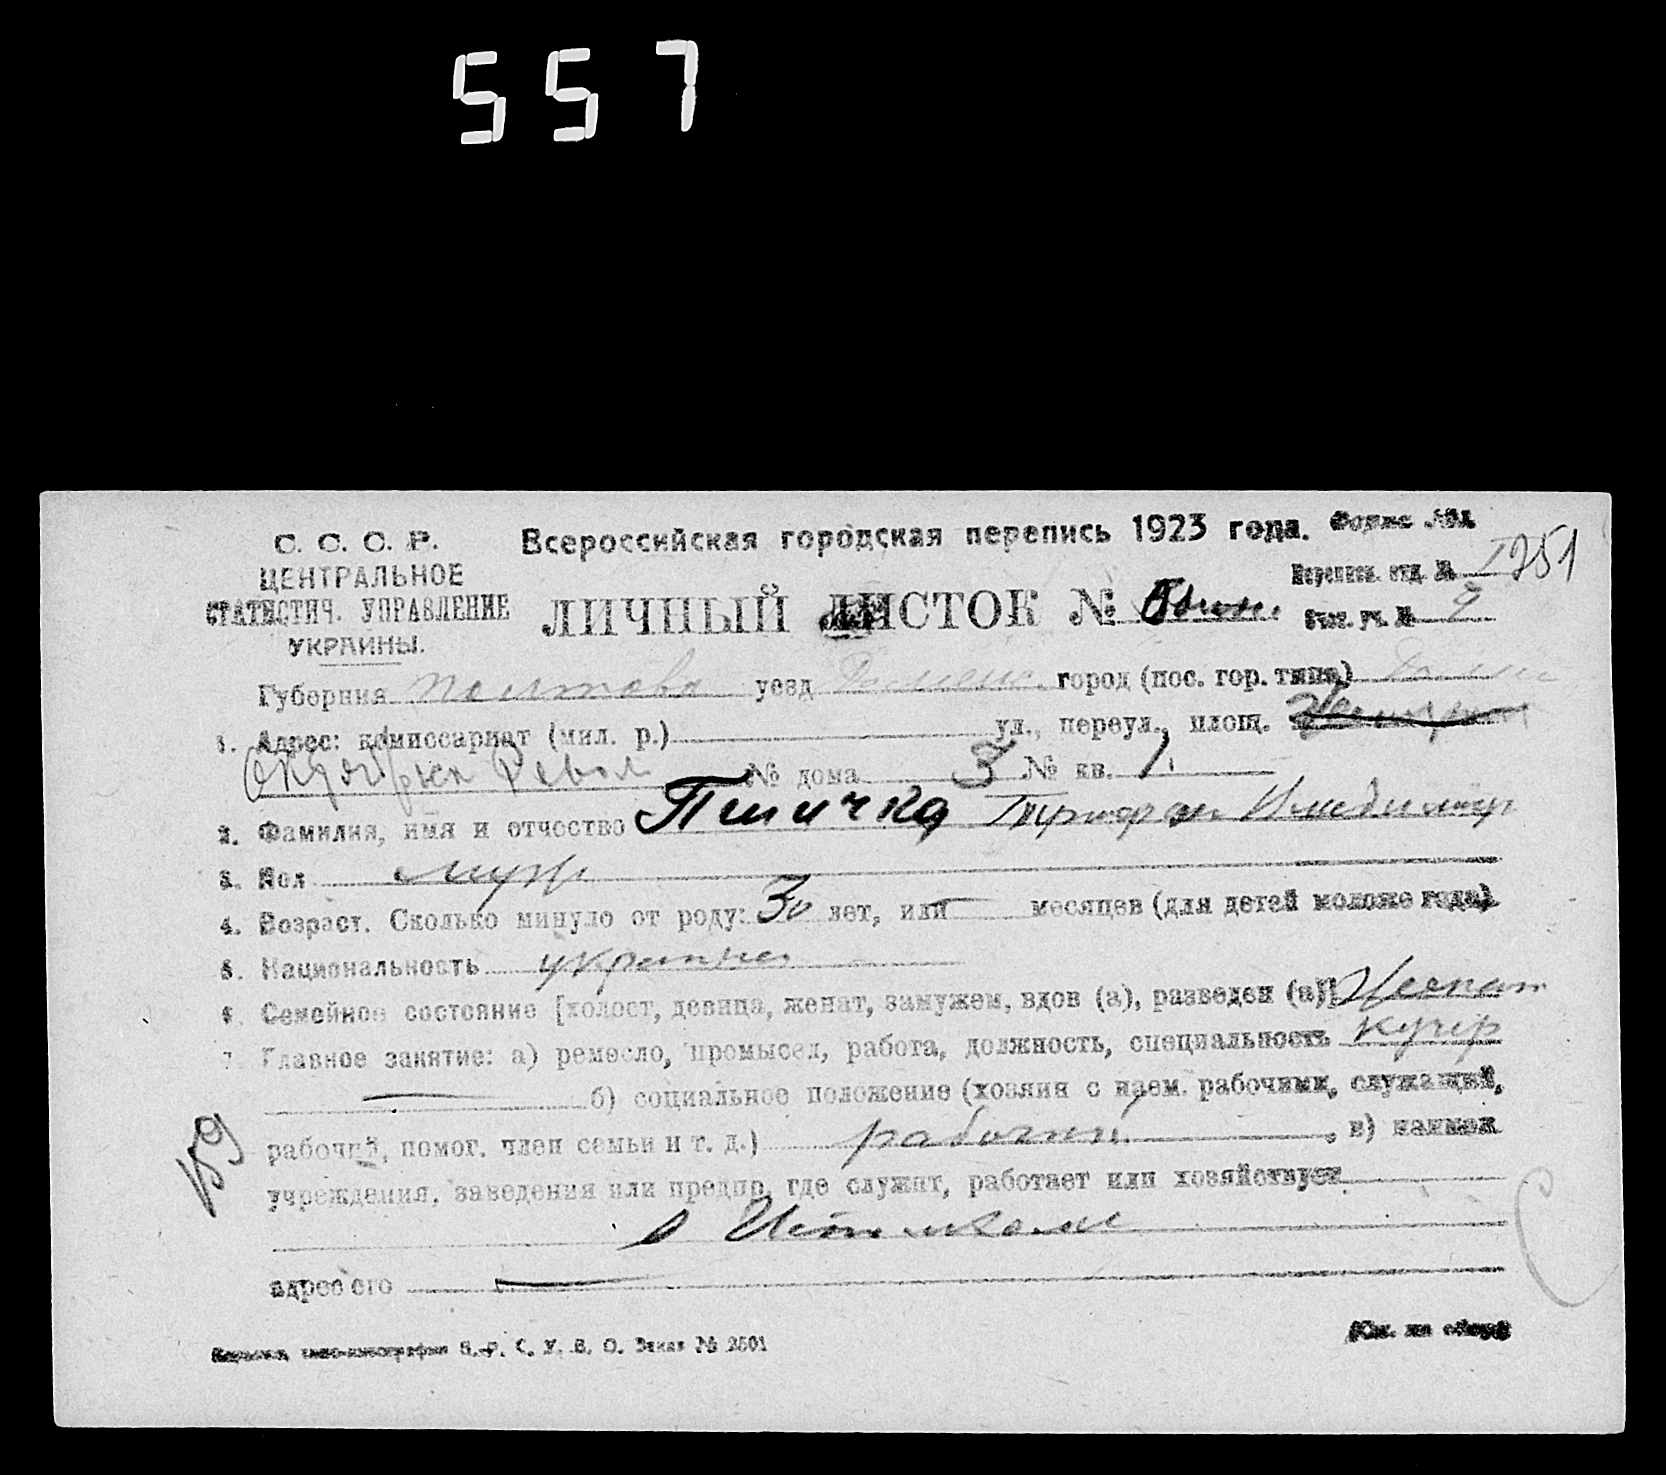 557
С. С. С. Р.
ЦЕНТРАЛЬНОЕ
СТАТИСТИЧ. УПРАВЛЕНИЕ
УКРАИНЫ.
Всероссийская городская перепись 1923 года.
I 251
ЛИЧНЫЙ ЛИСТОК №
Губерния Полтавск уезд Роменс. город (пос. гор. типа) Ромны
1. Адрес: комиссариат (мил. р.) ул., переул., площ.
Октябрьск Револ № дома 3 № кв. 1
2. Фамилия, имя и отчество Пшичка
3. Пол муж
4. Возраст. Сколько минуло от роду: 30 лет, или — месяцев (для детей моложе года)
5. Национальность украинец
6. Семейное состояние [холост, девица, женат, замужем, вдов (а), разведен (а)] Женат
7. Главное занятие: а) ремесло, промысел, работа, должность, специальность кучер
— б) социальное положение (хозяин с наем. рабочими, служащий,
рабочий, помог. член семьи и т. д.) рабочий, в) наимен
учреждения, заведения или предпр. где служит, работает или хозяйствует
в Исполкоме
адрес его —
59
(См. на обор)
С. У. В. О. Заказ № 2501